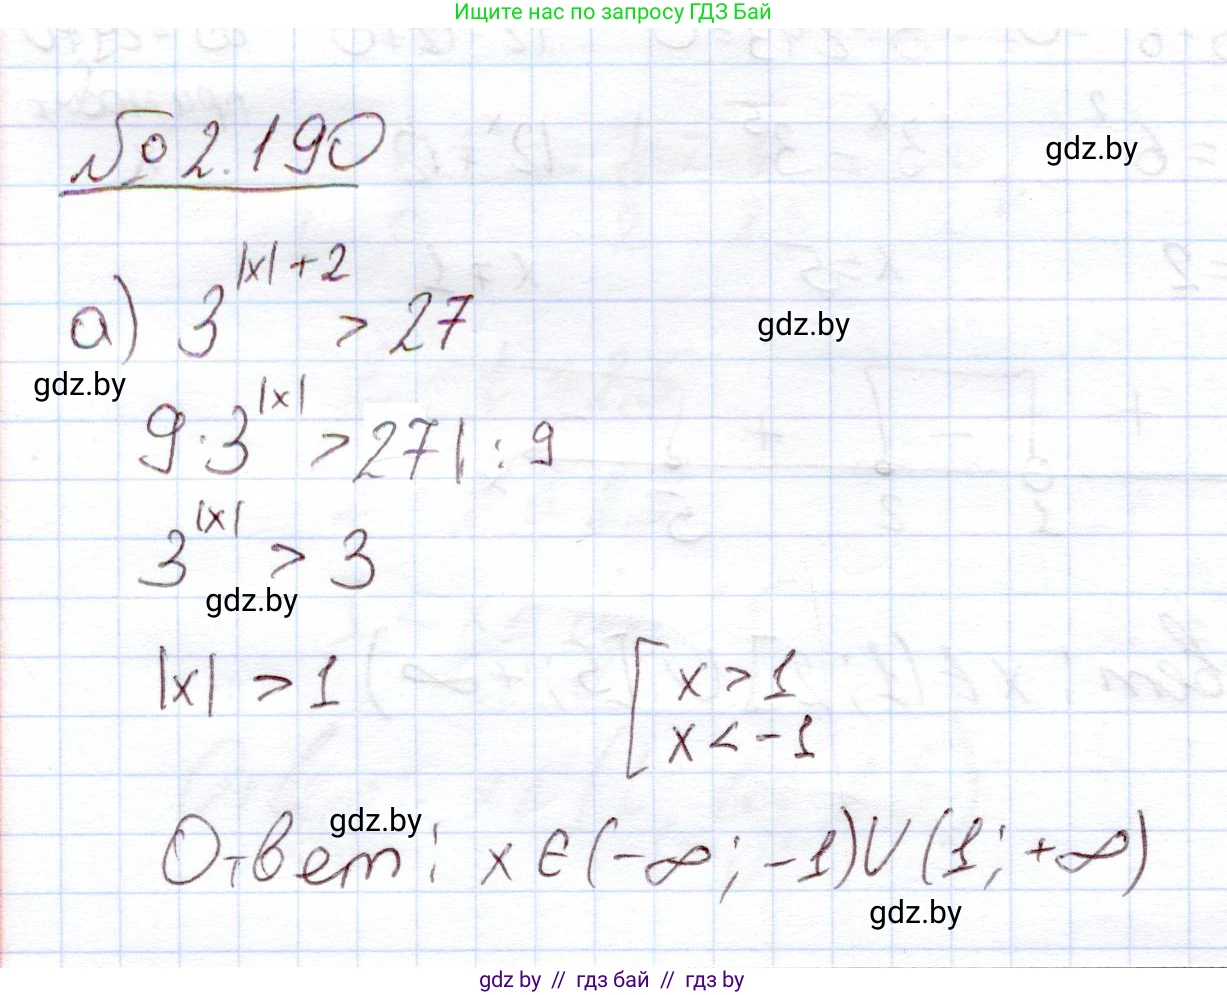 Ищите нас по запросу ГДЗ Бай
№ 2.190
gdz.by
а) 3^{|x|+2} > 27
gdz.by
gdz.by
9·3^{|x|} > 27 | : 9
3^{|x|} > 3
gdz.by
|x| > 1 [ x > 1
x < -1
gdz.by
Ответ: x ∈ (-∞; -1) ∪ (1; +∞)
gdz.by
gdz by // гдз бай // gdz by